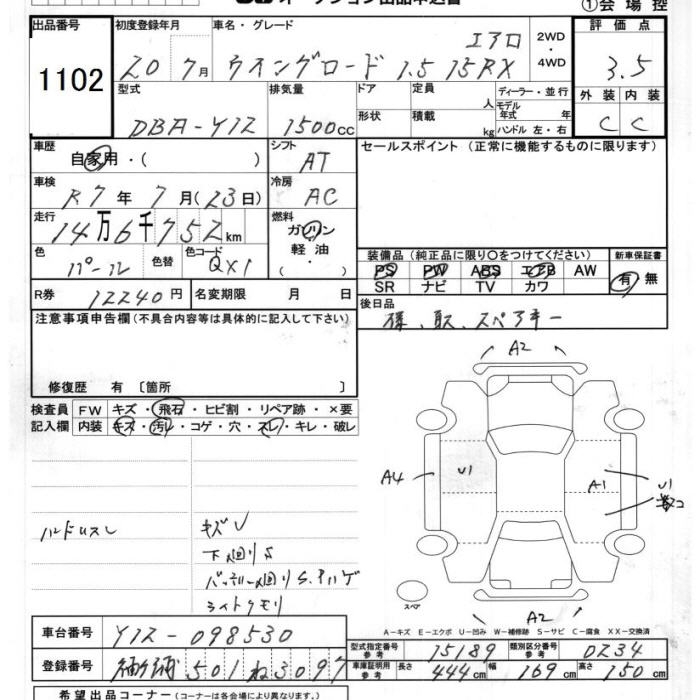 オークション出品申込書
①会 場 控
出品番号 初度登録年月 車名・グレード 評 価 点
1102 20 7月 ウイングロード 1.5 15RX エアロ 2WD ・ 4WD 3.5
型式 排気量 ドア 定員 人 ディーラー・並行 外 装 内 装
DBA-Y12 1500cc 形状 積載 kg モデル年式 年 ハンドル 左・右 C C
車歴 自家用・( ) シフト AT セールスポイント (正常に機能するものに限ります)
車検 R7年 7月(23日) 冷房 AC
走行 14万6千752km 燃料 ガソリン 軽油 ・( )
色 パール 色替 色コード QX1
装備品(純正品に限り○をつけてください) 新車保証書
PS PW ABS エアB AW 有 無
SR ナビ TV カワ
R券 12240円 名変期限 月 日 後日品
注意事項申告欄(不具合内容等は具体的に記入して下さい) 様、取、スペアキー
修復歴 有〔箇所 〕
検査員 FW キズ・飛石・ヒビ割・リペア跡・×要
記入欄 内装 キズ・汚レ・コゲ・穴・スレ・キレ・破レ
A2
A4 U1 A1 U1
ハンドルスレ キズU
下廻りS
バッテリー廻りS.ハゲ
ライトクモリ
スペア
A2
A－キズ E－エクボ U－凹み W－補修跡 S－サビ C－腐食 XX－交換済
車台番号 Y12-098530 型式指定番号 参考 15189 類別区分番号 参考 0234
登録番号 501 ね 3097 車庫証明用 参考 長さ 444cm 幅 169cm 高さ 150cm
希望出品コーナー(コーナーは各会場により異なります。)